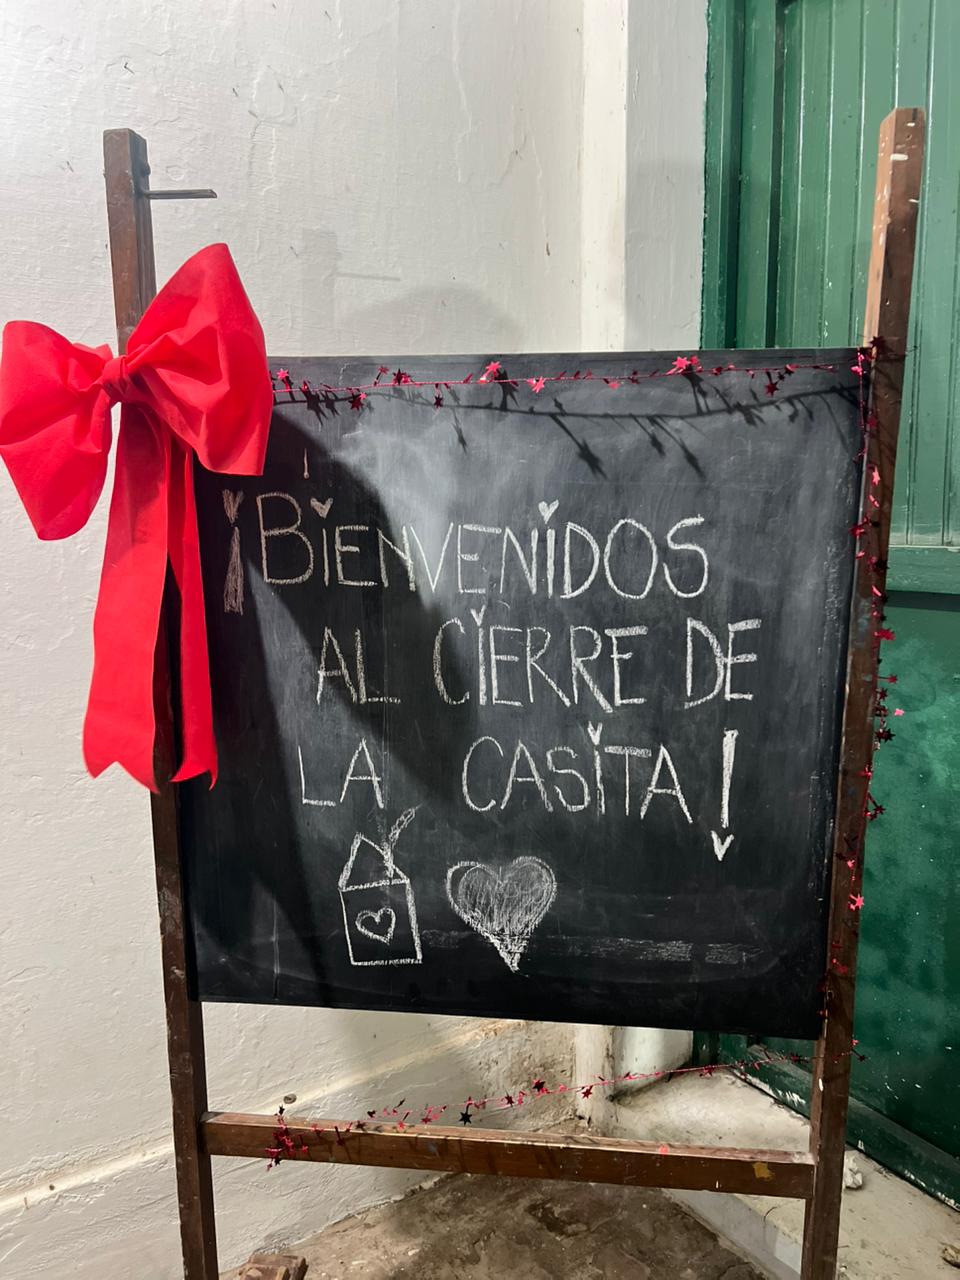 ¡BIENVENIDOS
AL CIERRE DE
LA CASITA!